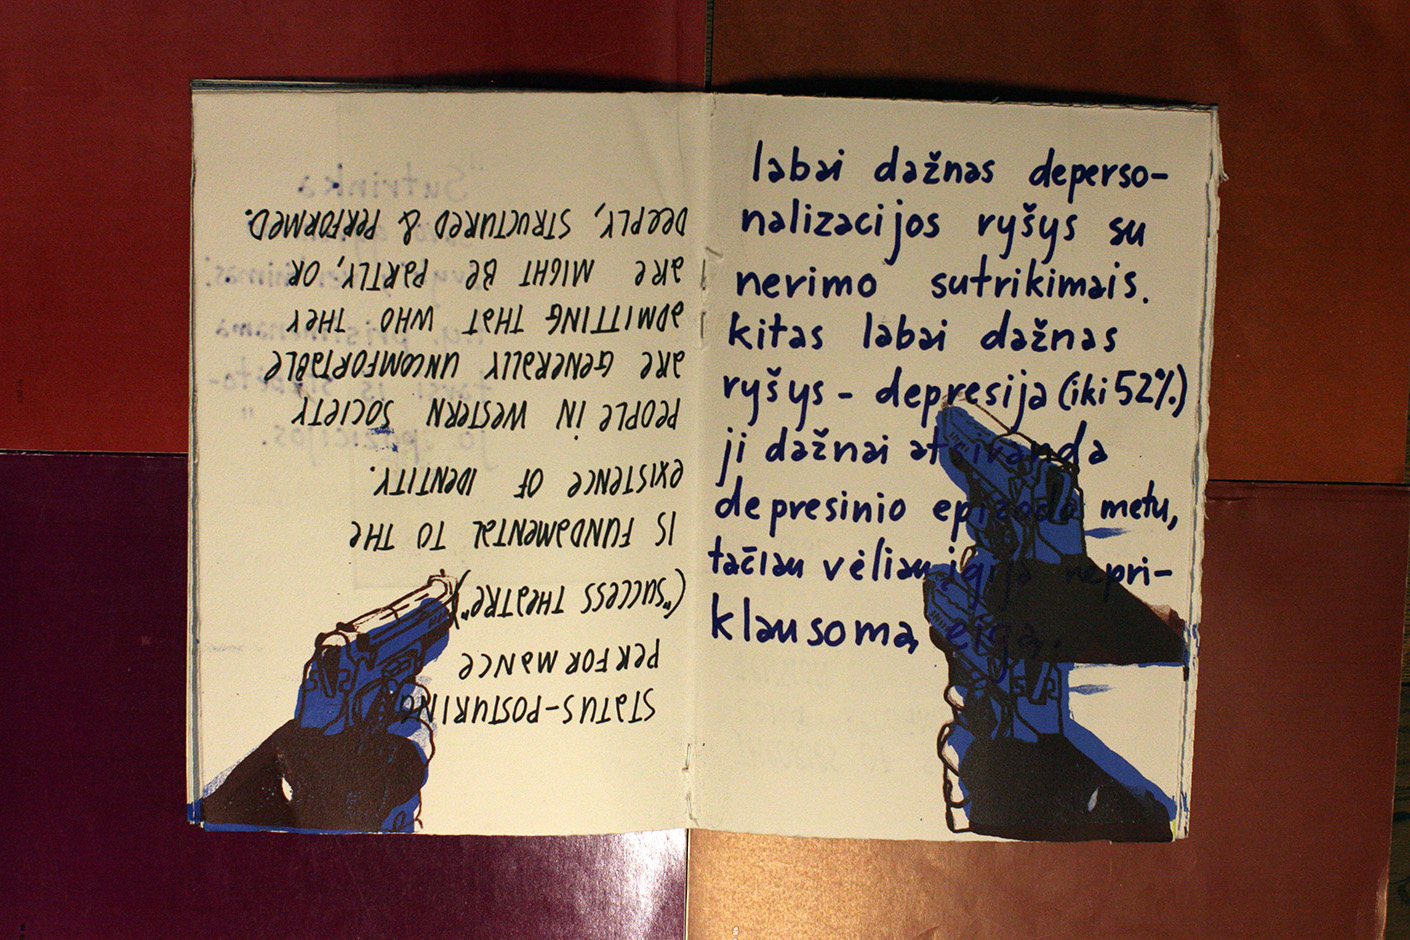 STATUS-POSTURING
PERFORMANCE
("SUCCESS THEATRE")
IS FUNDAMENTAL TO THE
EXISTENCE OF IDENTITY.
PEOPLE IN WESTERN SOCIETY
ARE GENERALLY UNCOMFORTABLE
ADMITTING THAT WHO THEY
ARE MIGHT BE PARTLY, OR
DEEPLY, STRUCTURED & PERFORMED.
labai dažnas deperso-
nalizacijos ryšys su
nerimo sutrikimais.
kitas labai dažnas
ryšys - depresija (iki 52%)
ji dažnai atsivanda
depresinio epizodo metu,
tačiau vėliau įgija nepri-
klausomą eigą.